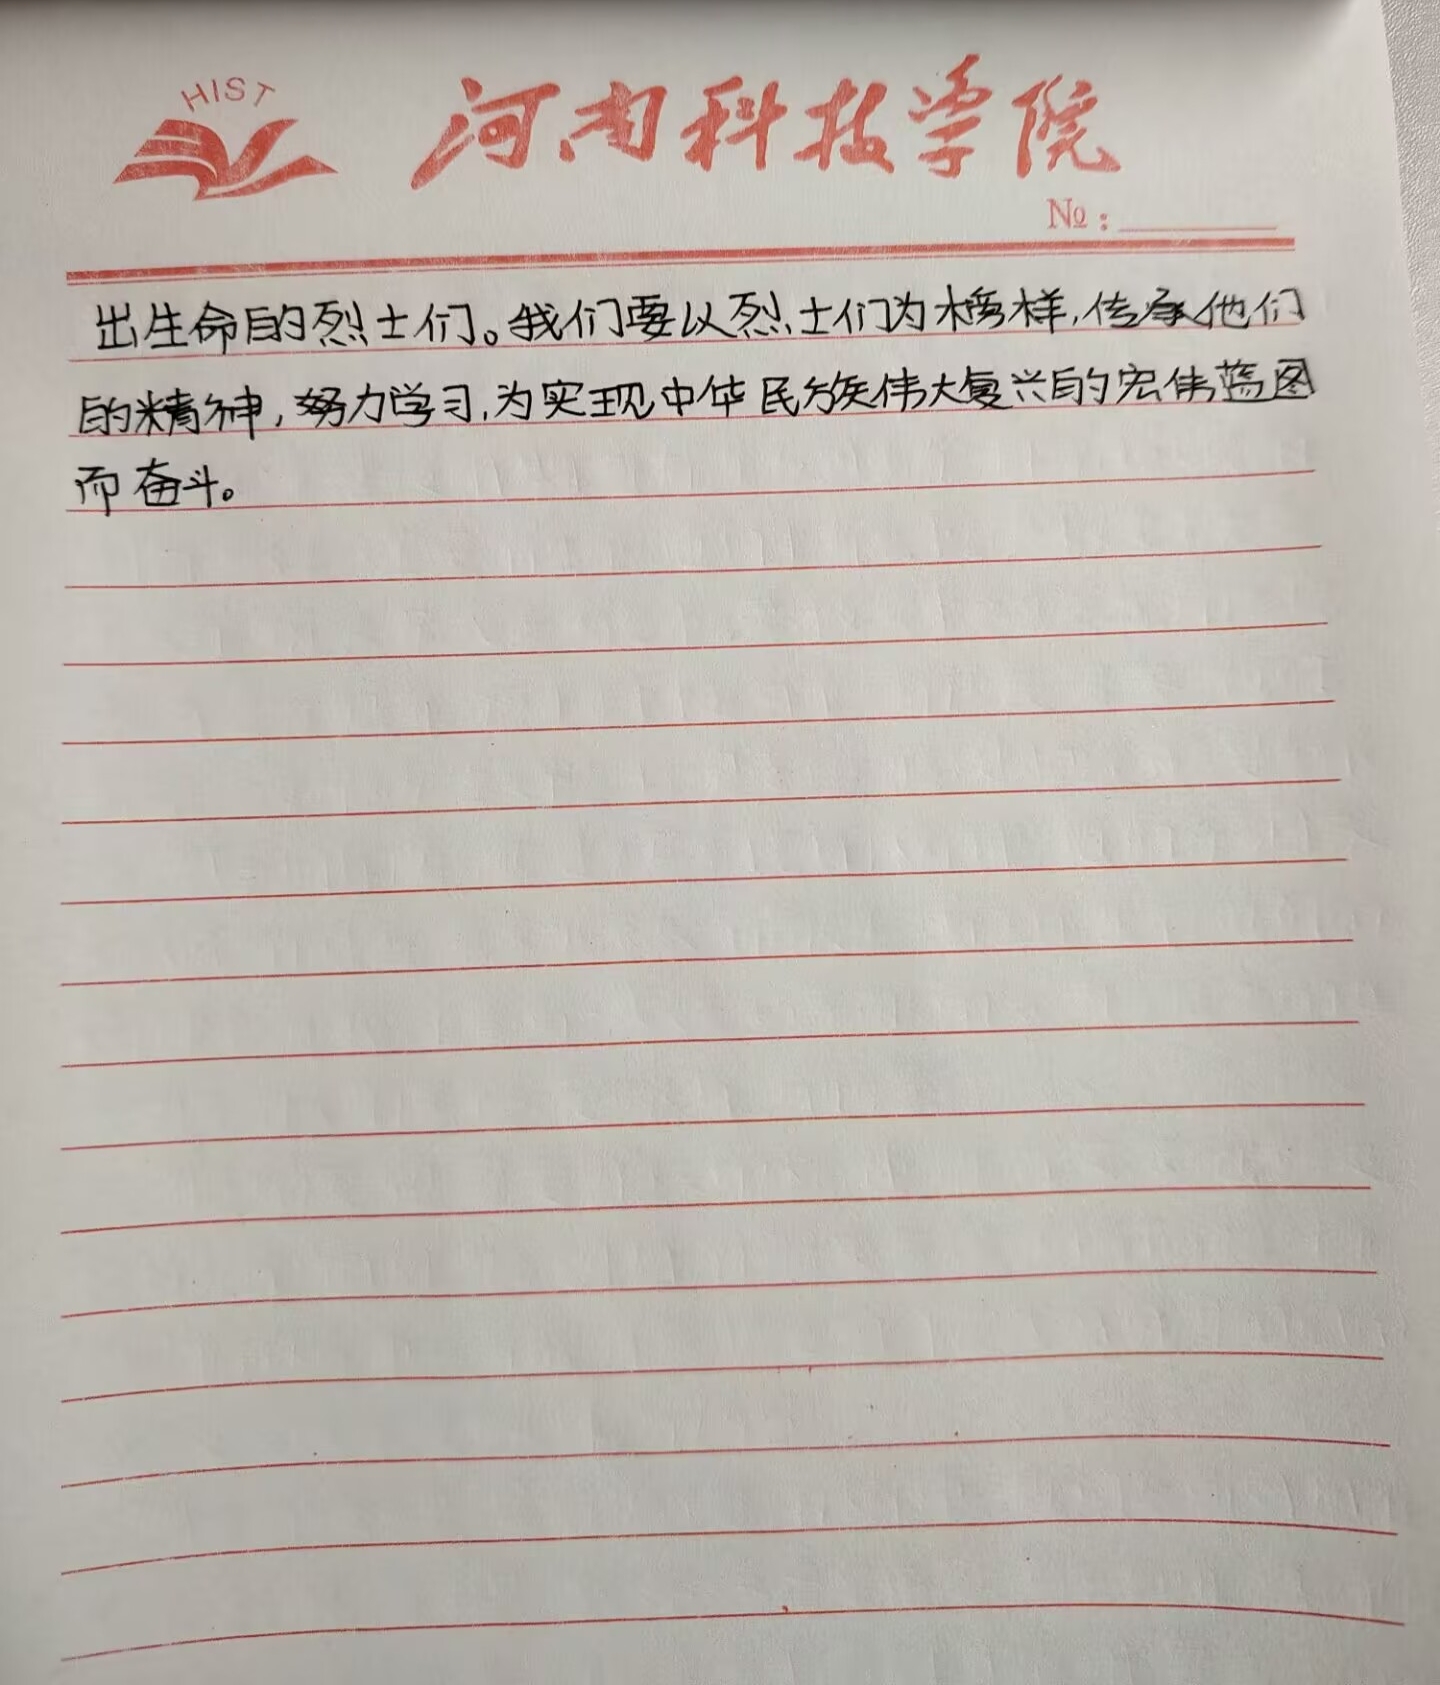 HIST
河南科技学院
№：
出生命的烈士们。我们要以烈士们为榜样，传承他们
的精神，努力学习，为实现中华民族伟大复兴的宏伟蓝图
而奋斗。